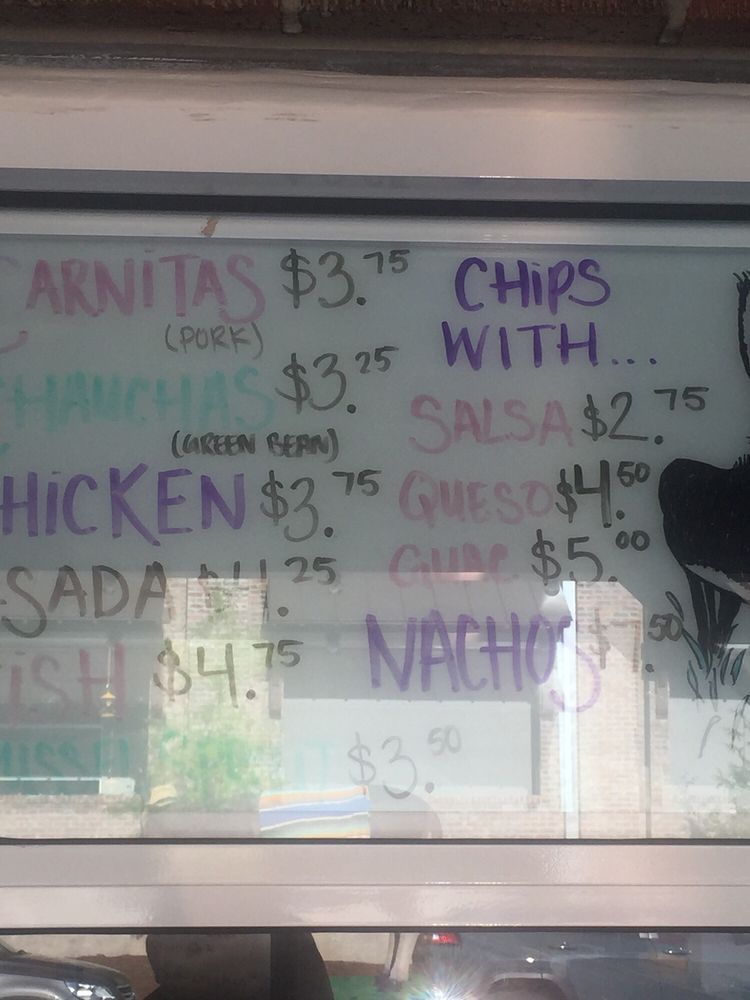 CARNITAS $3.75
(PORK)
CHAUCHAS $3.25
(GREEN BEAN)
HICKEN $3.75
SADA $4.25
ISH $4.75
$3.50
CHIPS
WITH...
SALSA $2.75
QUESO $4.50
GUAC $5.00
NACHOS $7.50